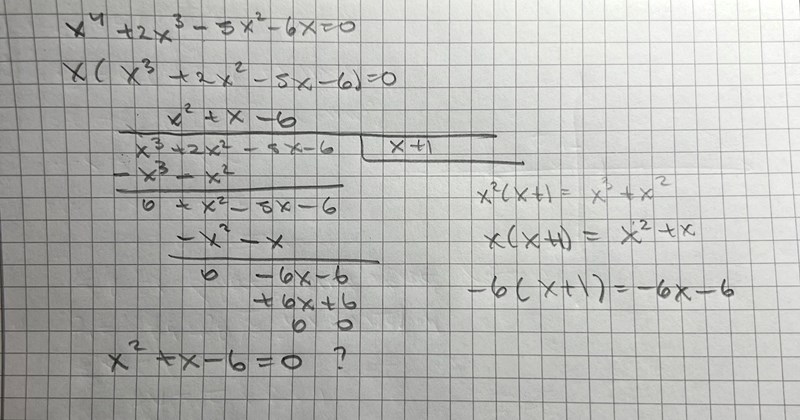 x⁴ + 2x³ - 5x² - 6x = 0
x( x³ + 2x² - 5x - 6) = 0
x² + x - 6
x³ + 2x² - 5x - 6 x+1
- x³ - x²
0 + x² - 5x - 6
- x² - x
0 - 6x - 6
+ 6x + 6
0 0
x² + x - 6 = 0 ?
x²(x+1 = x³ + x²
x(x+1) = x² + x
-6(x+1) = -6x - 6